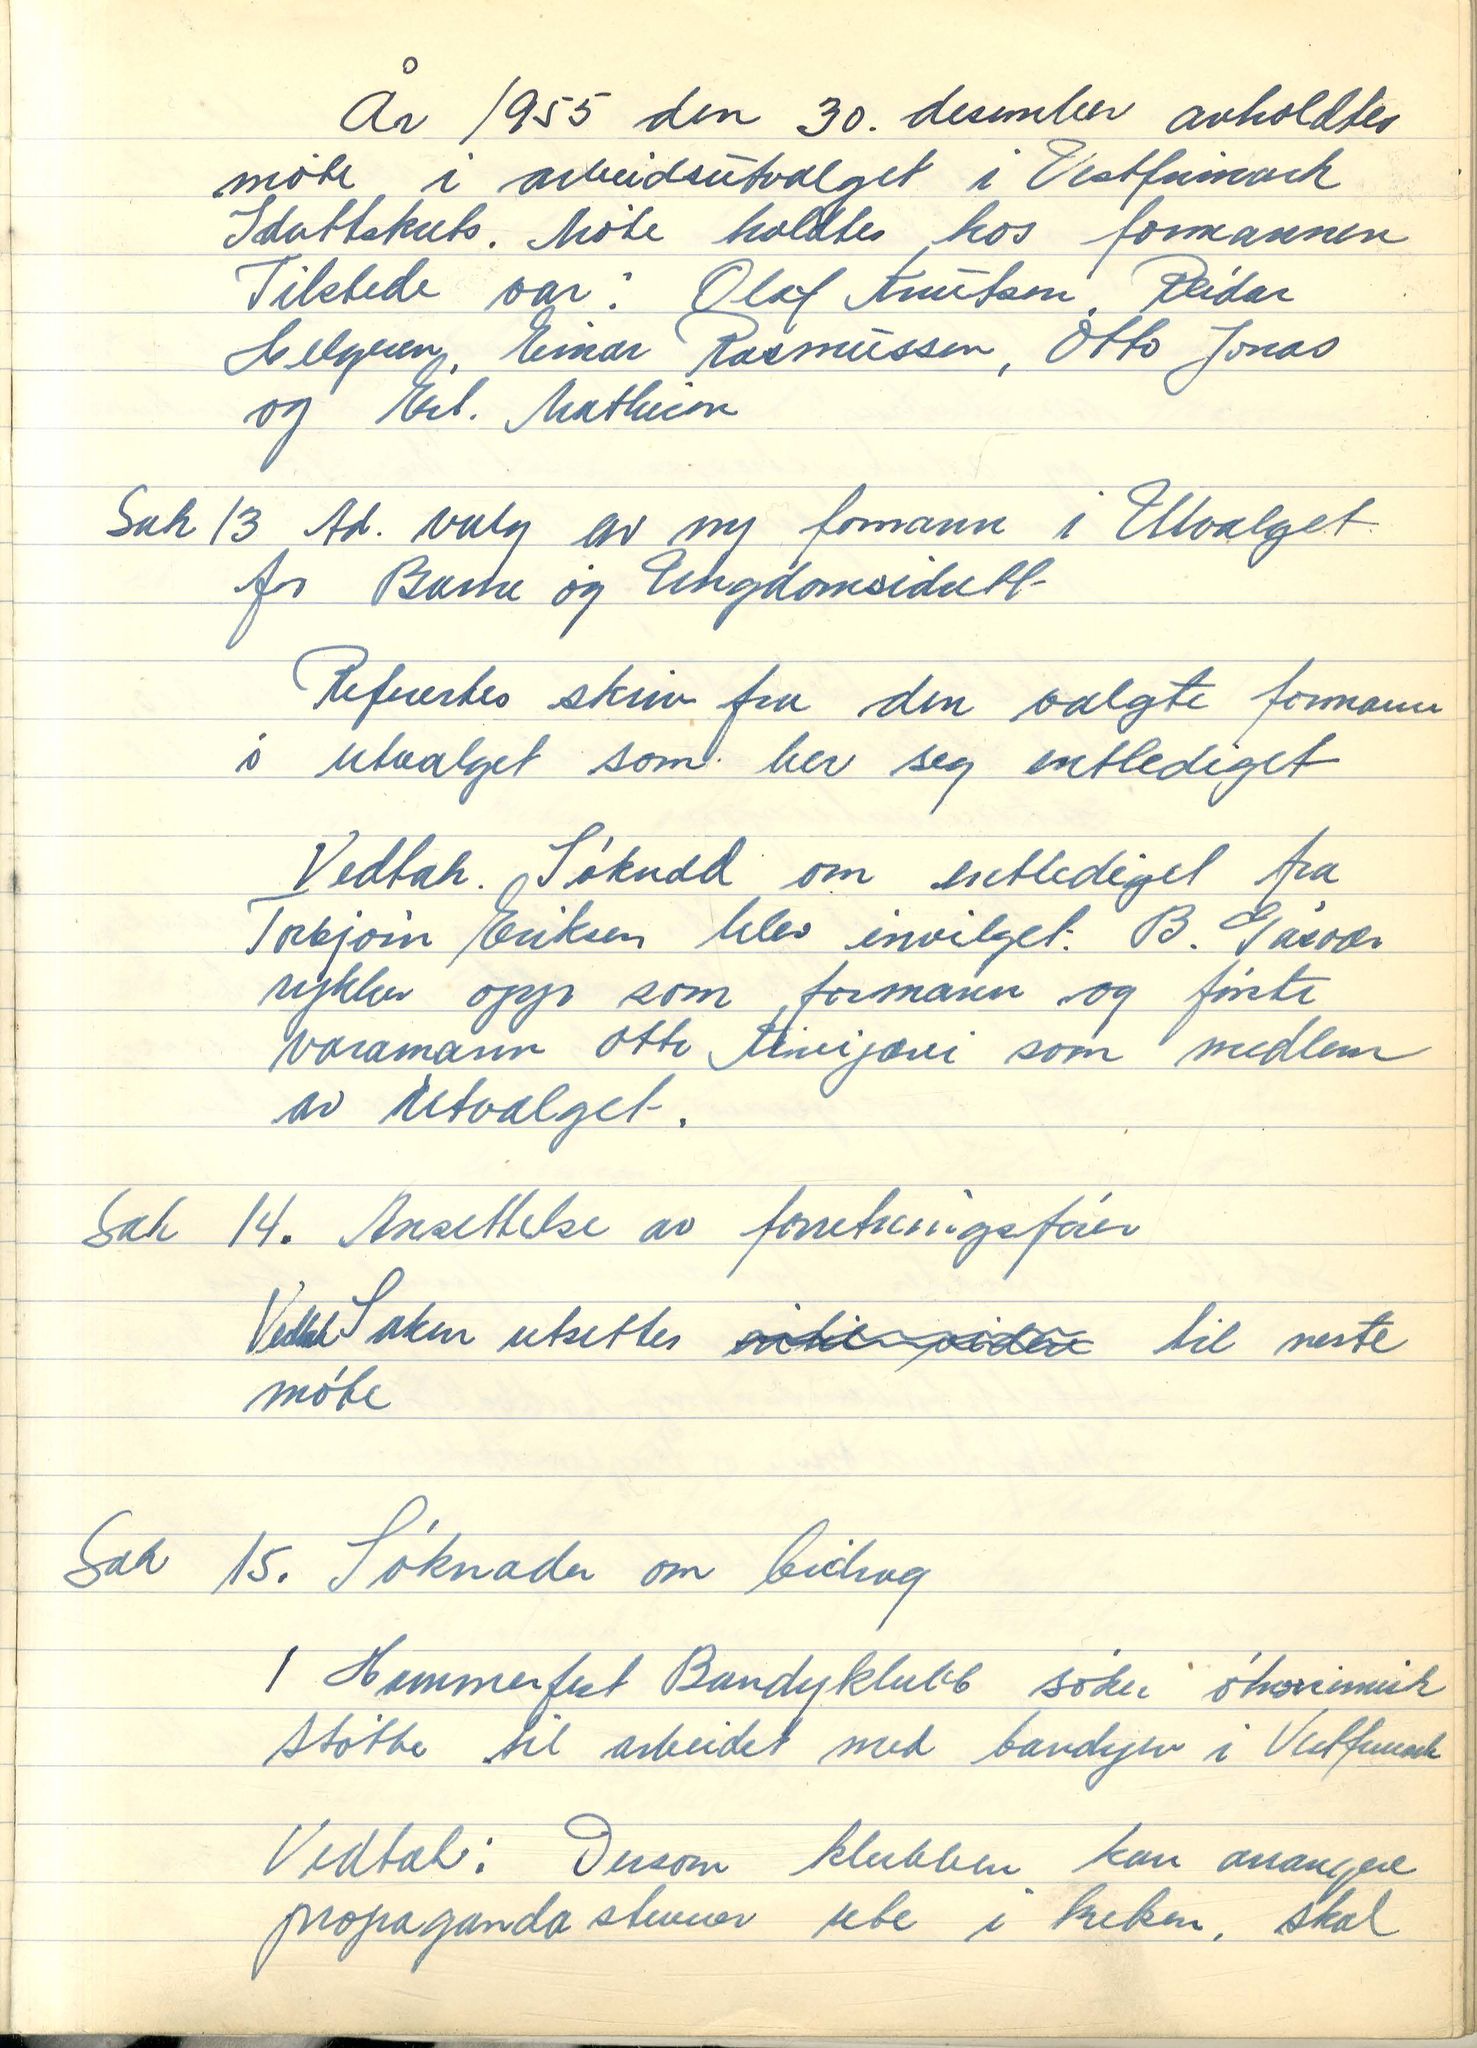 År 1955 den 30. desember avholdtes
møte i arbeidsutvalget i Vestfinmark
Idrettskrets. Møte holdtes hos formannen
Tilstede var: Olaf Knutsen, Reidar
Helgesen, Einar Rasmussen, Otto Jonas
og Erl. Mathisen
Sak 13 Ad. valg av ny formann i Utvalget
for Barne og Ungdomsidrett
Refertes skriv fra den valgte formann
i utvalget som ber seg entlediget
Vedtak. Søknad om entlediget fra
Torbjørn Eriksen blev invilget. B. Gåsvær
rykker opp som formann og første
varamann Otto Kivijervi som medlem
av Utvalget.
Sak 14. Ansettelse av forretningsfører
Vedtak Saken utsettes inntil videre til neste
møte
Sak 15. Søknader om bidrag
1 Hammerfest Bandyklubb søker økonimisk
støtte til arbeidet med bandyen i Vestfinmark
Vedtak: Dersom klubben kan arrangere
propaganda stevner ute i kretsen, skal